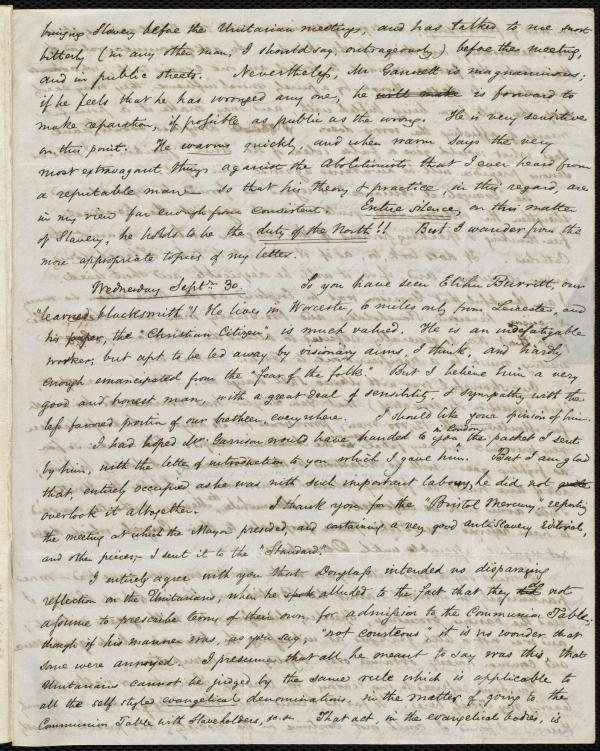 bringing Slavery before the Unitarian meetings, and has talked to me most
bitterly (in any other man, I should say, outrageously) before the meeting,
and in public streets. Nevertheless, Mr Gannett is magnanimous;
if he feels that he has wronged any one, he will make is forward to
make reparation, if possible as public as the wrong. He is very sensitive
on this point. He warms quickly, and when warm says the very
most extravagant things against the Abolitionists that I ever heard from
a reputable man so that his theory & practice, in this regard, are
in my view far enough from consistent. Entire silence, on this matter
of Slavery, he holds to be the duty of the North!! But I wander from the
more appropriate topics of my letter.
Wednesday Sept. 30. So you have seen Elihu Burritt, our
"learned blacksmith"! He lives in Worcester, 6 miles only from Leicester, and
his paper, the "Christian Citizen", is much valued. He is an indefatigable
worker; but apt to be led away by visionary aims, I think, and hardly
enough emancipated from the "fear of the folk." But I believe him a very
good and honest man, with a great deal of sensibility, & sympathy with the
less favored portion of our brethren, everywhere. I should like your opinion of him.
I had hoped Mr. Garrison would have handed to you in London the packet I sent
by him, with the letter of introduction to you which I gave him. But I am glad
that, entirely occupied as he was with such important labours, he did not quite
overlook it altogether. I thank you for the "Bristol Mercury," reporting
the meeting at which the Mayor presided, and containing a very good anti-Slavery Editorial,
and other pieces;- I sent it to the "Standard."
I entirely agree with you that Douglass intended no disparaging
reflection on the Unitarians, when he spoke alluded to the fact that they do not
assume to prescribe terms of their own for admission to the Communion Table;
though if his manner was, as you say, "not courteous", it is no wonder that
some were annoyed. I presume that all he meant to say was this, that
Unitarians cannot be judged by the same rule which is applicable to
all the self-styled evangelical denominations, in the matter of going to the
Communion Table with Slaveholders, &c. &c. That act, in the evangelical bodies, is